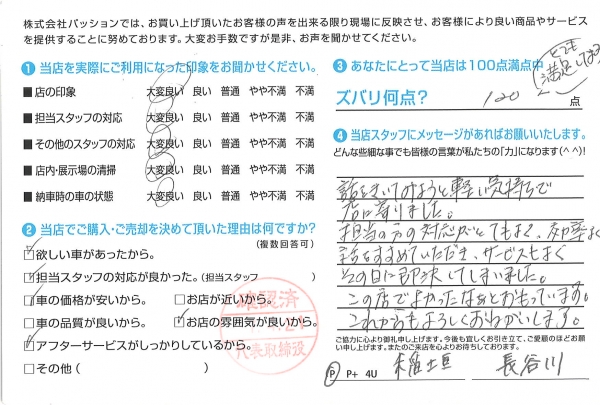 株式会社パッションでは、お買い上げ頂いたお客様の声を出来る限り現場に反映させ、お客様により良い商品やサービス
を提供することに努めております。大変お手数ですが是非、お声を聞かせてください。
❶ 当店を実際にご利用になった印象をお聞かせください。
■店の印象 大変良い 良い 普通 やや不満 不満
■担当スタッフの対応 大変良い 良い 普通 やや不満 不満
■その他のスタッフの対応 大変良い 良い 普通 やや不満 不満
■店内・展示場の清掃 大変良い 良い 普通 やや不満 不満
■納車時の車の状態 大変良い 良い 普通 やや不満 不満
❷ 当店でご購入・ご売却を決めて頂いた理由は何ですか?
(複数回答可)
☑欲しい車があったから。
☑担当スタッフの対応が良かった。(担当スタッフ )
☑車の価格が安いから。 □お店が近いから。
□車の品質が良いから。 ☑お店の雰囲気が良いから。
☑アフターサービスがしっかりしているから。
□その他( )
確認済
代表取締役
❸ あなたにとって当店は100点満点中
ズバリ何点? 120 点
とても
満足してます
❹ 当店スタッフにメッセージがあればお願いいたします。
どんな些細な事でも皆様の言葉が私たちの「力」になります(^^)!
話をきいてみようと軽い気持ちで
店に寄りました。
担当の方の対応がとてもよく、効率よく
話をすすめていただき、サービスもよく
その日に即決してしまいました。
この店でよかったなぁとおもっています。
これからもよろしくおねがいします。
ご協力に心より御礼申し上げます。今後も宜しくお引き立て、ご愛顧のほどお願
い申し上げます。またのご来店を心よりお待ちしております。
P P+ 4U 稲垣 長谷川